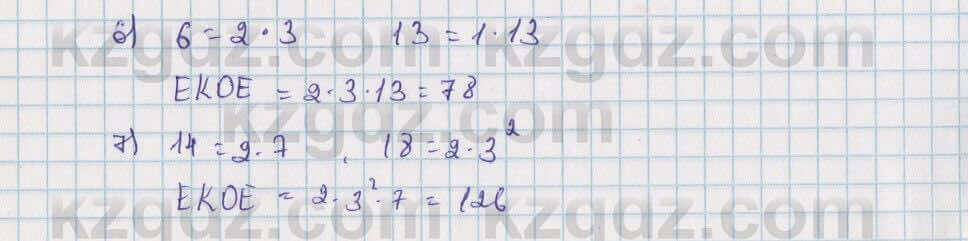 6) 6 = 2 · 3 13 = 1 · 13
ЕКОЕ = 2 · 3 · 13 = 78
7) 14 = 2 · 7 , 18 = 2 · 3²
ЕКОЕ = 2 · 3² · 7 = 126
kzgdz.com kzgdz.com
kzgdz.com
kzgdz.com kzgdz.com